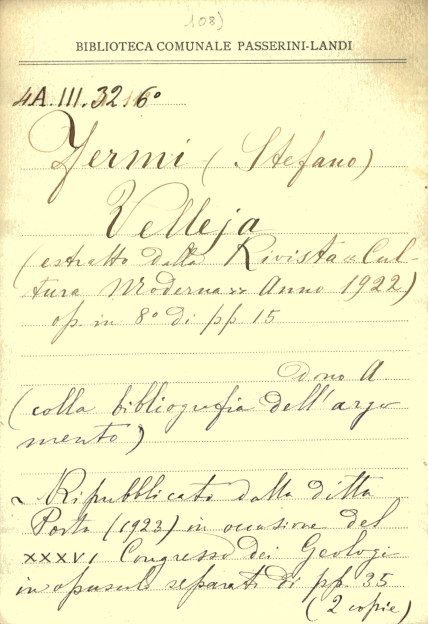 108)
BIBLIOTECA COMUNALE PASSERINI-LANDI
4A.III.32.6°
Fermi (Stefano)
Velleja
(estratto dalla Rivista "Cul-
tura Moderna" Anno 1922)
op. in 8° di pp. 15
Dono A
(colla bibliografia dell'argo
mento)
Ripubblicato dalla ditta
Porta (1923) in occasione del
XXXVI Congresso dei Geologi
in opuscoli separati di pp. 35
(2 copie)